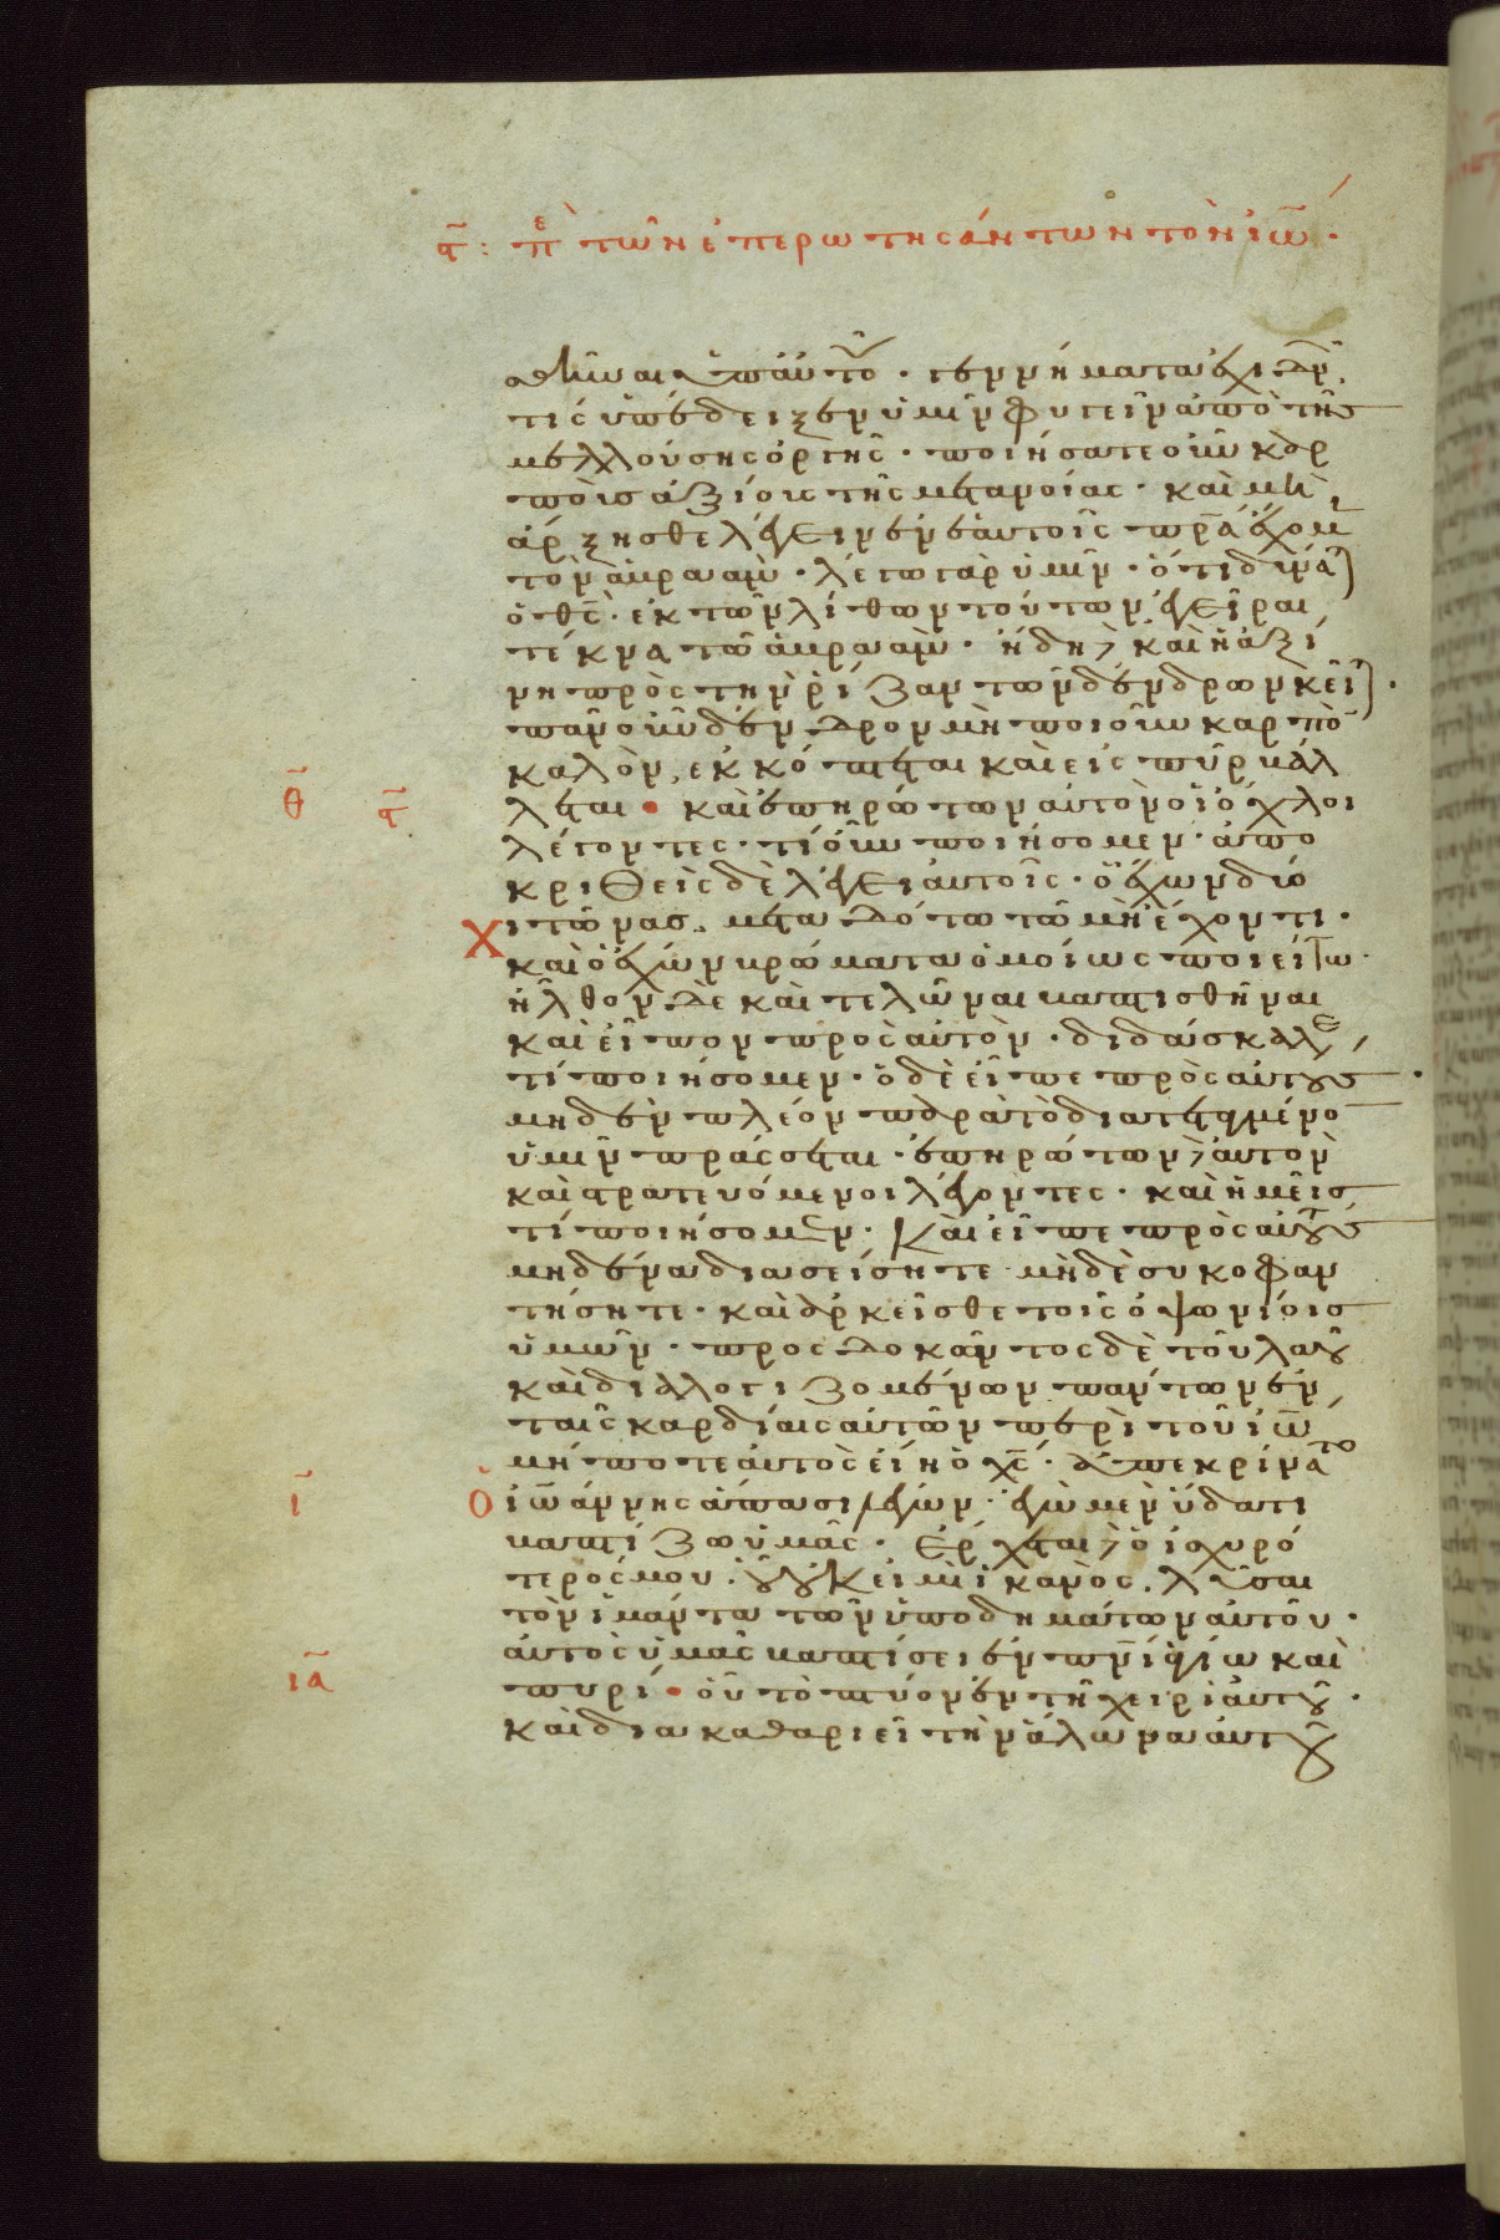 ϛ̄: πε τῶν ἐπερωτησάντων τὸν ἰω̄.
σθῆναι ὑπ' αὐτοῦ· γεννήματα ἐχιδνῶν
τίς ὑπέδειξεν ὑμῖν φυγεῖν ἀπὸ τῆς
μελλούσης ὀργῆς· ποιήσατε οὖν καρ
ποὺς ἀξίους τῆς μετανοίας· καὶ μὴ
ἄρξησθε λέγειν ἐν ἑαυτοῖς π̅ρ̅α̅ ἔχομεν
τὸν ἀβραάμ· λέγω γὰρ ὑμῖν· ὅτι δύναται
ὁ θ̅ς̅· ἐκ τῶν λίθων τούτων ἐγεῖραι
τέκνα τῶ ἀβραάμ· ἤδη δὲ καὶ ἡ ἀξί
νη πρὸς τὴν ῥίζαν τῶν δένδρων κεῖται·
πᾶν οὖν δένδρον μὴ ποιοῦν καρπὸν
καλὸν, ἐκκόπτεται καὶ εἰς πῦρ βάλ
θ̄ ϛ̄ λεται· καὶ ἐπηρώτων αὐτὸν οἱ ὄχλοι
λέγοντες· τί οὖν ποιήσομεν· ἀπο
κριθεὶς δὲ λέγει αὐτοῖς· ὁ ἔχων δύο
χιτῶνας. μεταδότω τῶ μὴ ἔχοντι·
καὶ ὁ ἔχων βρώματα ὁμοίως ποιείτω·
ἦλθον δὲ καὶ τελῶναι βαπτισθῆναι
καὶ εἶπον πρὸς αὐτόν· διδάσκαλε,
τί ποιήσομεν· ὁ δὲ εἶπε πρὸς αὐτοὺς·
μηδὲν πλέον παρὰ τὸ διατεταγμένον
ὑμῖν πράσσεται· ἐπηρώτων δὲ αὐτὸν
καὶ στρατευόμενοι λέγοντες· καὶ ἡμεῖς
τί ποιήσομεν· Καὶ εἶπε πρὸς αὐτοὺς
μηδένα διασείσητε μηδὲ συκοφαν
τήσητε· καὶ ἀρκεῖσθε τοῖς ὀψωνίοις
ὑμῶν· προσδοκῶντος δὲ τοῦ λαοῦ
καὶ διαλογιζομένων πάντων ἐν
ταῖς καρδίαις αὐτῶν περὶ τοῦ ἰω̅
μήποτε αὐτὸς εἴη ὁ χ̅ς̅· ἀπεκρίνατο
ῑ ὁ ἰωάννης ἅπασι λέγων· ἐγὼ μὲν ὕδατι
βαπτίζω ὑμᾶς· Ἔρχεται δὲ ὁ ἰσχυρό
τερός μου· οὗ οὐκ εἰμὶ ἱκανὸς. λῦσαι
τὸν ἱμάντα τῶν ὑποδημάτων αὐτοῦ·
αὐτὸς ὑμᾶς βαπτίσει ἐν π̅ν̅ι̅ ἁγίω καὶ
ιᾱ πυρί· οὗ τὸ πτύον ἐν τῆ χειρὶ αὐτοῦ·
καὶ διακαθαριεῖ τὴν ἅλωνα αὐτοῦ